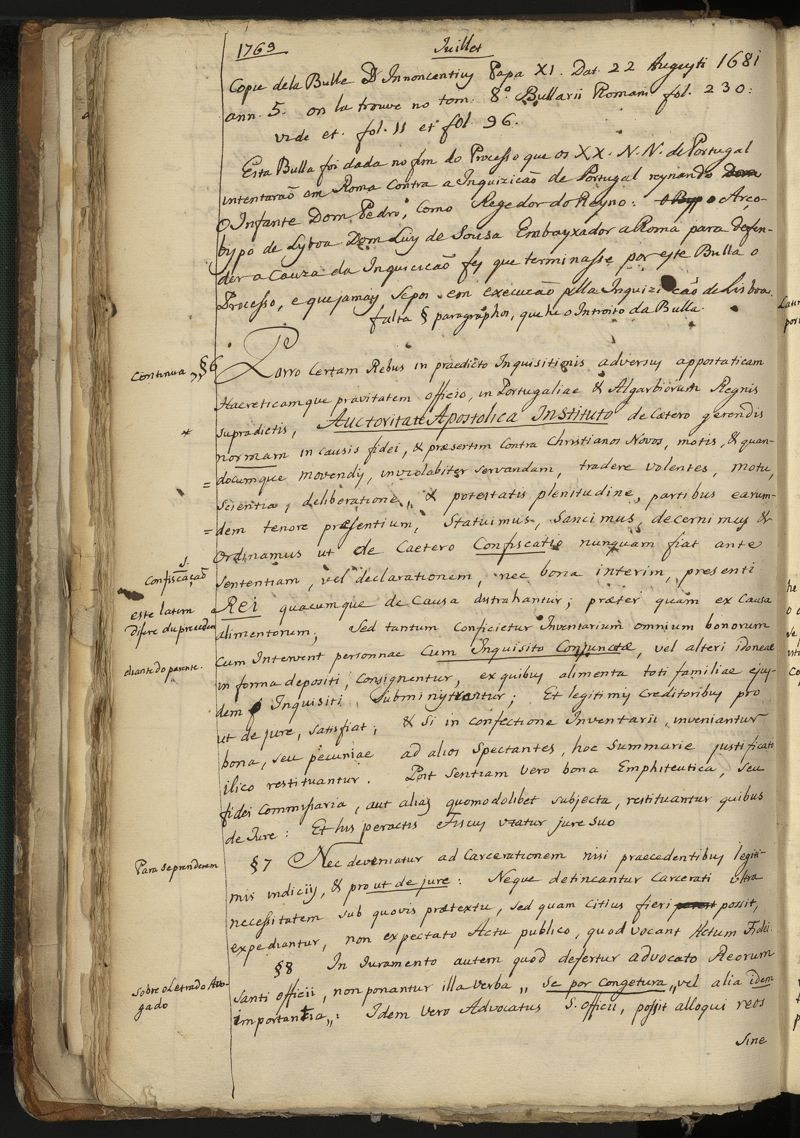 1769 Juillet
Copie de la Bulle D Innocentius Papa XI. Dat. 22 Augusti 1681
ann. 5. on la trouve no tom. 8° Bullarii Romani fol. 230:
vide et. fol. 11 et fol 96.
Esta Bulla foi dada no fim do Processo que os XX. N.N. de Portugal
intentaraõ em Roma contra a Inquiziçaõ de Portugal reynando
O Infante Dom Pedro, como Regedor do Reyno: o Arce-
bypo de Lysboa Dom Luiz de Sousa Embayxador a Roma para defen-
der a Cauza da Inquisicaõ fez que terminasse por este Bulla o
Processo, e que jamaiz se pos em execucaõ pella Inquizicaõ de Lisboa.
falta § paragraphos, que he o Introito da Bulla.
Continua „ §6 Porro Certam Rebus in praedicto Inquisitionis adversus appostaticam
Haereticamque pravitatem officio, in Portugaliae & Algarbiorum Regnis
* supradictis, Auctoritate Apostolica Instituto de Cætero gerendis
normam in causis fidei, & præsertim contra Christianos Novos, motis, & quan-
= documque movendis, inviolabiter servandam, tradere volentes, motu,
scientia, deliberatione, & potestatis plenitudine, partibus earum-
= dem tenore præsentium, Statuimus, Sancimus, decernimus &
Ordinamus ut de Caetero Confiscatio nunquam fiat ante
S.
Confiscaçaõ
sententiam, vel declarationem, nec bona interim, presenti
este latim
Rei quacumque de Causa distrahantur; præter quam ex Causa
difere du precedem
alimentorum; sed tantum conficietur Inventarium omnium bonorum
Cum Intervent personnae Cum Inquisito Conjunctæ, vel alteri idoneae
diante do parente.
in forma depositi, consignentur, ex quibus alimenta toti familiae ejus-
dem Inquisiti subministrentur; Et legitimis creditoribus pro
ut de jure, satisfiat; & si in confectione Inventarii, inveniantur
bona, seu pecuniae ad alios spectantes, hoc summarie justificati
ilico restituantur. Post sentiam vero bona Emphiteutica, seu
fidei Commissaria, aut alias quomodolibet subjecta, restituantur quibus
de Jure: Et his peractis Fiscus utatur jure suo
Para se prenderem §7 Nec deveniatur ad Carcerationem nisi praecedentibus legiti-
mis indiciis, & pro ut de jure: Neque detineantur Carcerati ultra
necessitatem sub quovis prætextu, sed quam citius fieri possit,
expediantur, non expectato Actu publico, quod vocant Actum Fidei.
§8 In Juramento autem quod defertur advocato Reorum
Sobre o Letrado Avo-
gado
Santi officii, non ponantur illa verba „ Se por Congetura „ vel alia idem
importantia „: Idem vero Advocatus S. officii, possit alloqui reos
sine